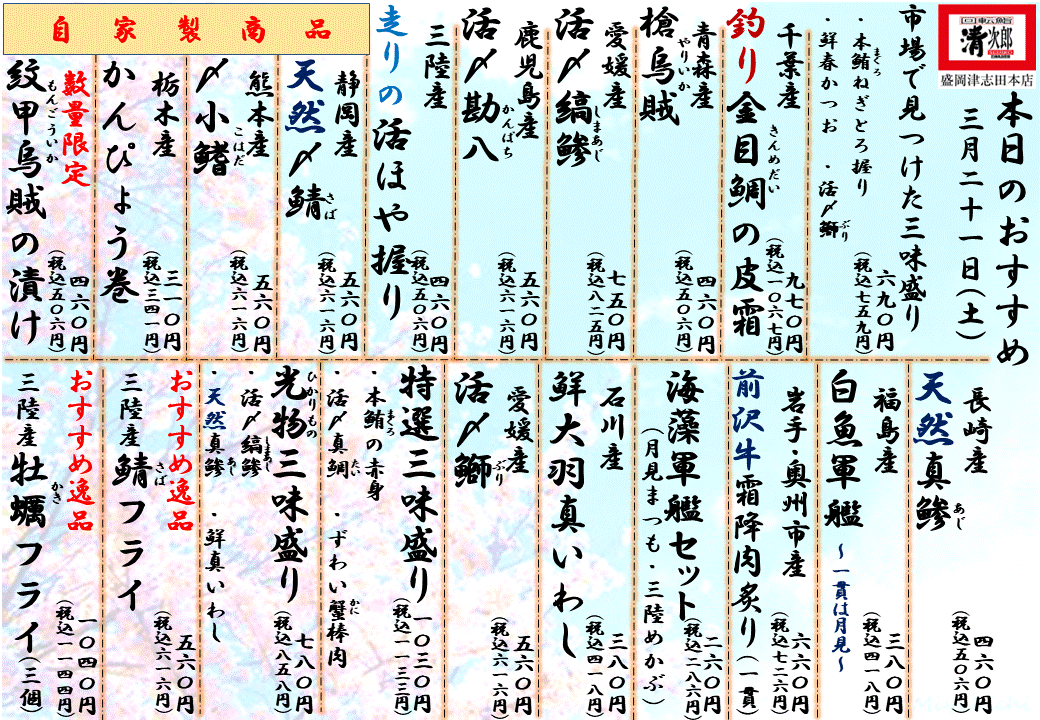 回転鮨
清次郎
盛岡津志田本店
本日のおすすめ
三月二十一日(土)
市場で見つけた三味盛り
・本鮪ねぎとろ握り
まぐろ
・鮮春かつお ・活〆鰤
ぶり
六九〇円
(税込七五九円)
千葉産
釣り金目鯛の皮霜
きんめだい
九七〇円
(税込一〇六七円)
青森産
槍烏賊
やりいか
四六〇円
(税込五〇六円)
愛媛産
活〆縞鯵
しまあじ
七五〇円
(税込八二五円)
鹿児島産
活〆勘八
かんぱち
五六〇円
(税込六一六円)
三陸産
走りの活ほや握り
四六〇円
(税込五〇六円)
自家製商品
静岡産
天然〆鯖
さば
五六〇円
(税込六一六円)
熊本産
〆小鰭
こはだ
五六〇円
(税込六一六円)
栃木産
かんぴょう巻
三一〇円
(税込三四一円)
数量限定
紋甲烏賊の漬け
もんごういか
四六〇円
(税込五〇六円)
長崎産
天然真鯵
あじ
四六〇円
(税込五〇六円)
福島産
白魚軍艦
~一貫は月見~
三八〇円
(税込四一八円)
岩手・奥州市産
前沢牛霜降肉炙り(一貫)
六六〇円
(税込七二六円)
海藻軍艦セット
(月見まつも・三陸めかぶ)
二六〇円
(税込二八六円)
石川産
鮮大羽真いわし
三八〇円
(税込四一八円)
愛媛産
活〆鰤
ぶり
五六〇円
(税込六一六円)
特選三味盛り
・本鮪の赤身
まぐろ
・活〆真鯛 ・ずわい蟹棒肉
たい
かに
一〇三〇円
(税込一一三三円)
光物三味盛り
ひかりもの
・活〆縞鯵
しまあじ
・天然真鯵 ・鮮真いわし
あじ
七八〇円
(税込八五八円)
おすすめ逸品
三陸産鯖フライ
さば
五六〇円
(税込六一六円)
おすすめ逸品
三陸産牡蠣フライ(三個)
かき
一〇四〇円
(税込一一四四円)